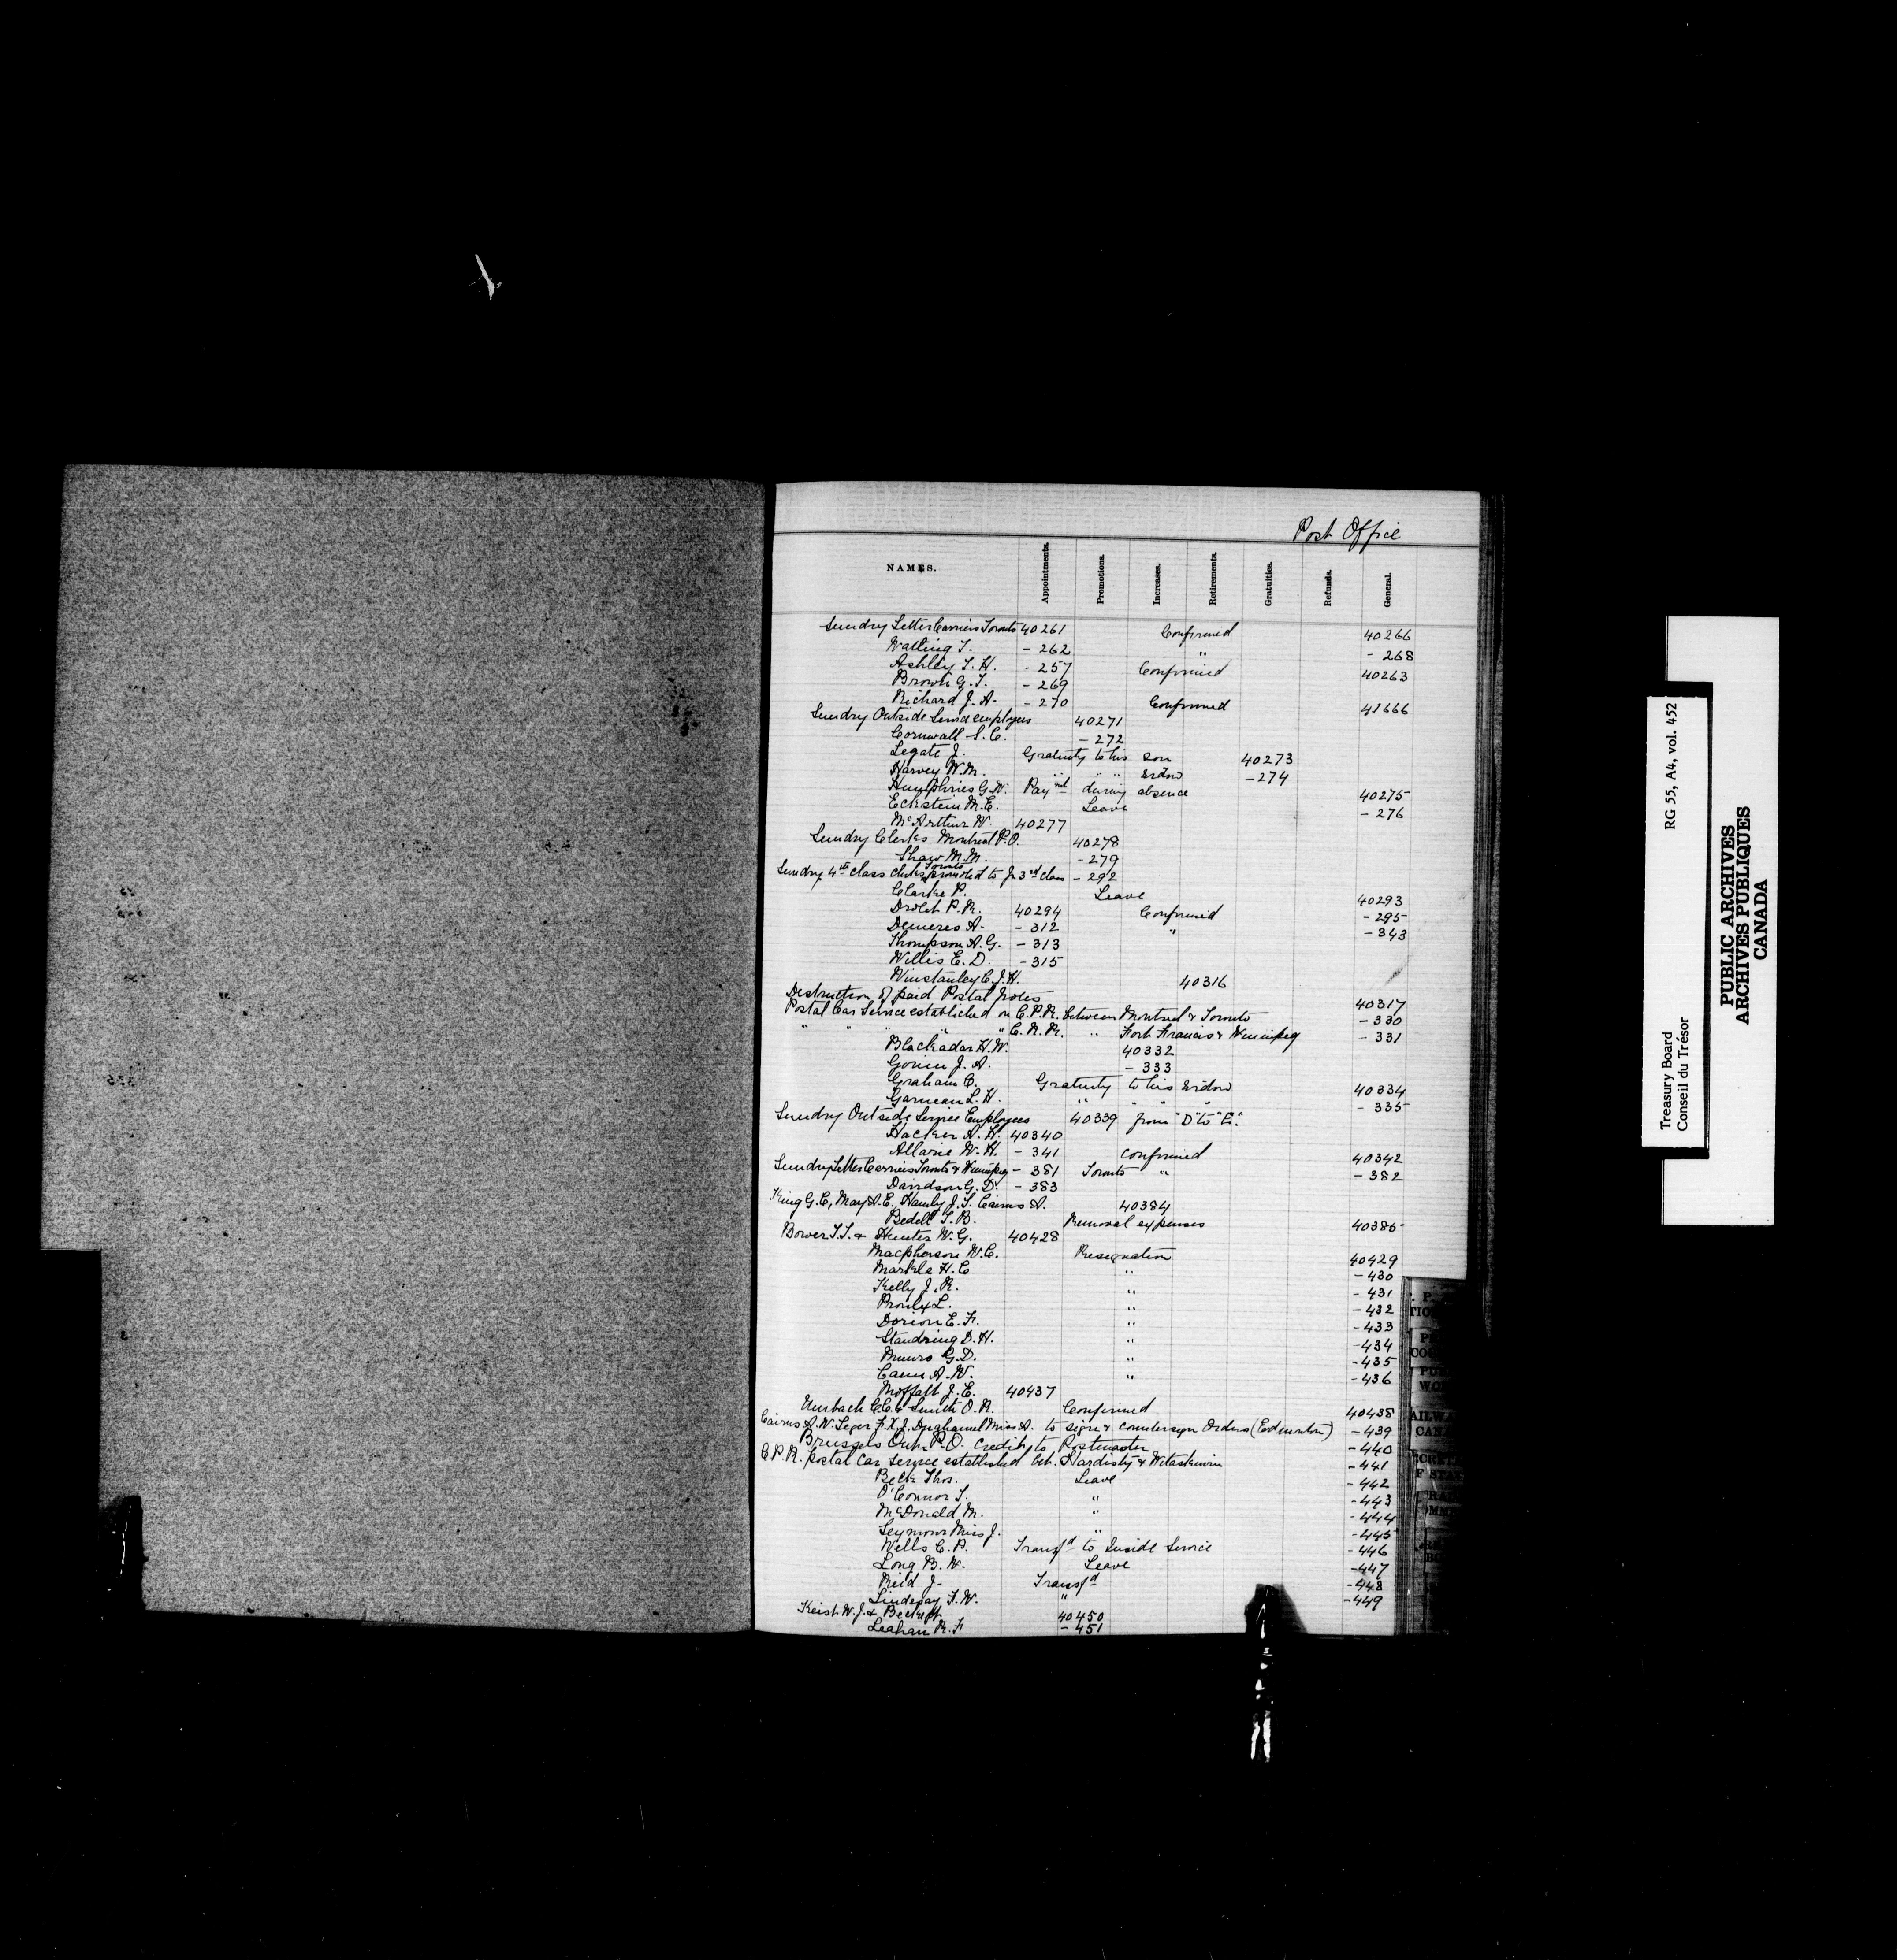 Post Office
NAMES. Appointments. Promotions. Increases. Retirements. Gratuities. Refunds. General.
Sundry Letter Carriers Toronto 40261 Confirmed 40266
Watling T. - 262 " - 268
Ashley T. H. - 257 Confirmed 40263
Brown G. T. - 269
Richard J. A. - 270 Confirmed 41666
Sundry Outside Service employees 40271
Cornwall S. C. - 272
Legate J. Gratuity to his son 40273
Harvey W. M. " " " widow - 274
Humphries G. W. Pay nt during absence 40275
Eckstein M. E. Leave - 276
McArthur W. 40277
Sundry Clerks Montreal P.O. 40278
Shaw M. M. - 279
Sundry 4th class clerks Toronto promoted to Jr 3rd class - 292
Clarke P. Leave 40293
Drolet P. R. 40294 Confirmed - 295
Demeres A. - 312 " - 343
Thompson A. G. - 313
Willis E. D. - 315
Winstanley C. J. H. 40316
Destruction of paid Postal Notes 40317
Postal Car Service established on C.P.R. between Montreal & Toronto - 330
" " " " " C. N. R. " Fort Francis & Winnipeg - 331
Blackadar H. W. 40332
Gorien J. A. - 333
Graham C. Gratuity to his widow 40334
Garneau L. H. " " " " - 335
Sundry Outside Service Employees 40339 from "D" to "E".
Hacker A. H. 40340
Allarie W. H. - 341 confirmed 40342
Sundry Letter Carriers Toronto & Winnipeg - 381 Toronto " - 382
Davidson G. D. - 383
King G. C, May A. E. Hamly J. T. Cairns A. 40384
Bedell T. B. Removal expenses 40385
Bower T. T. & Hunter W. G. 40428
Macpherson W. C. Resignation 40429
Markle H. C " - 430
Kelly J. R. " - 431
Proulx L. " - 432
Dorion E. F. " - 433
Standring D. H. " - 434
Munro G. D. " - 435
Cann A. W. " - 436
Moffatt J. E. 40437
Umbach C. C. & Smith O. R. Confirmed 40438
Cairns A. W. Leger F. X. J. Dughamel Miss A. to sign & countersign Orders (Edmonton) - 439
Brussels Ont. P.O. Credit to Postmaster - 440
C P. R. Postal Car Service established bet. Hardisty & Wetaskiwin - 441
Beck Thos. Leave - 442
O'Connor T. " - 443
McDonald M. " - 444
Seymour Miss J. " - 445
Wells C. P. Transfd to Inside Service - 446
Long B. W. Leave - 447
Reid J. Transfd - 448
Lindsay F. W. " - 449
Keist W. J. & Beckett 40450
Leahan R. F - 451
PUBLIC ARCHIVES
ARCHIVES PUBLIQUES
CANADA
Treasury Board RG 55, A4, vol. 452
Conseil du Trésor